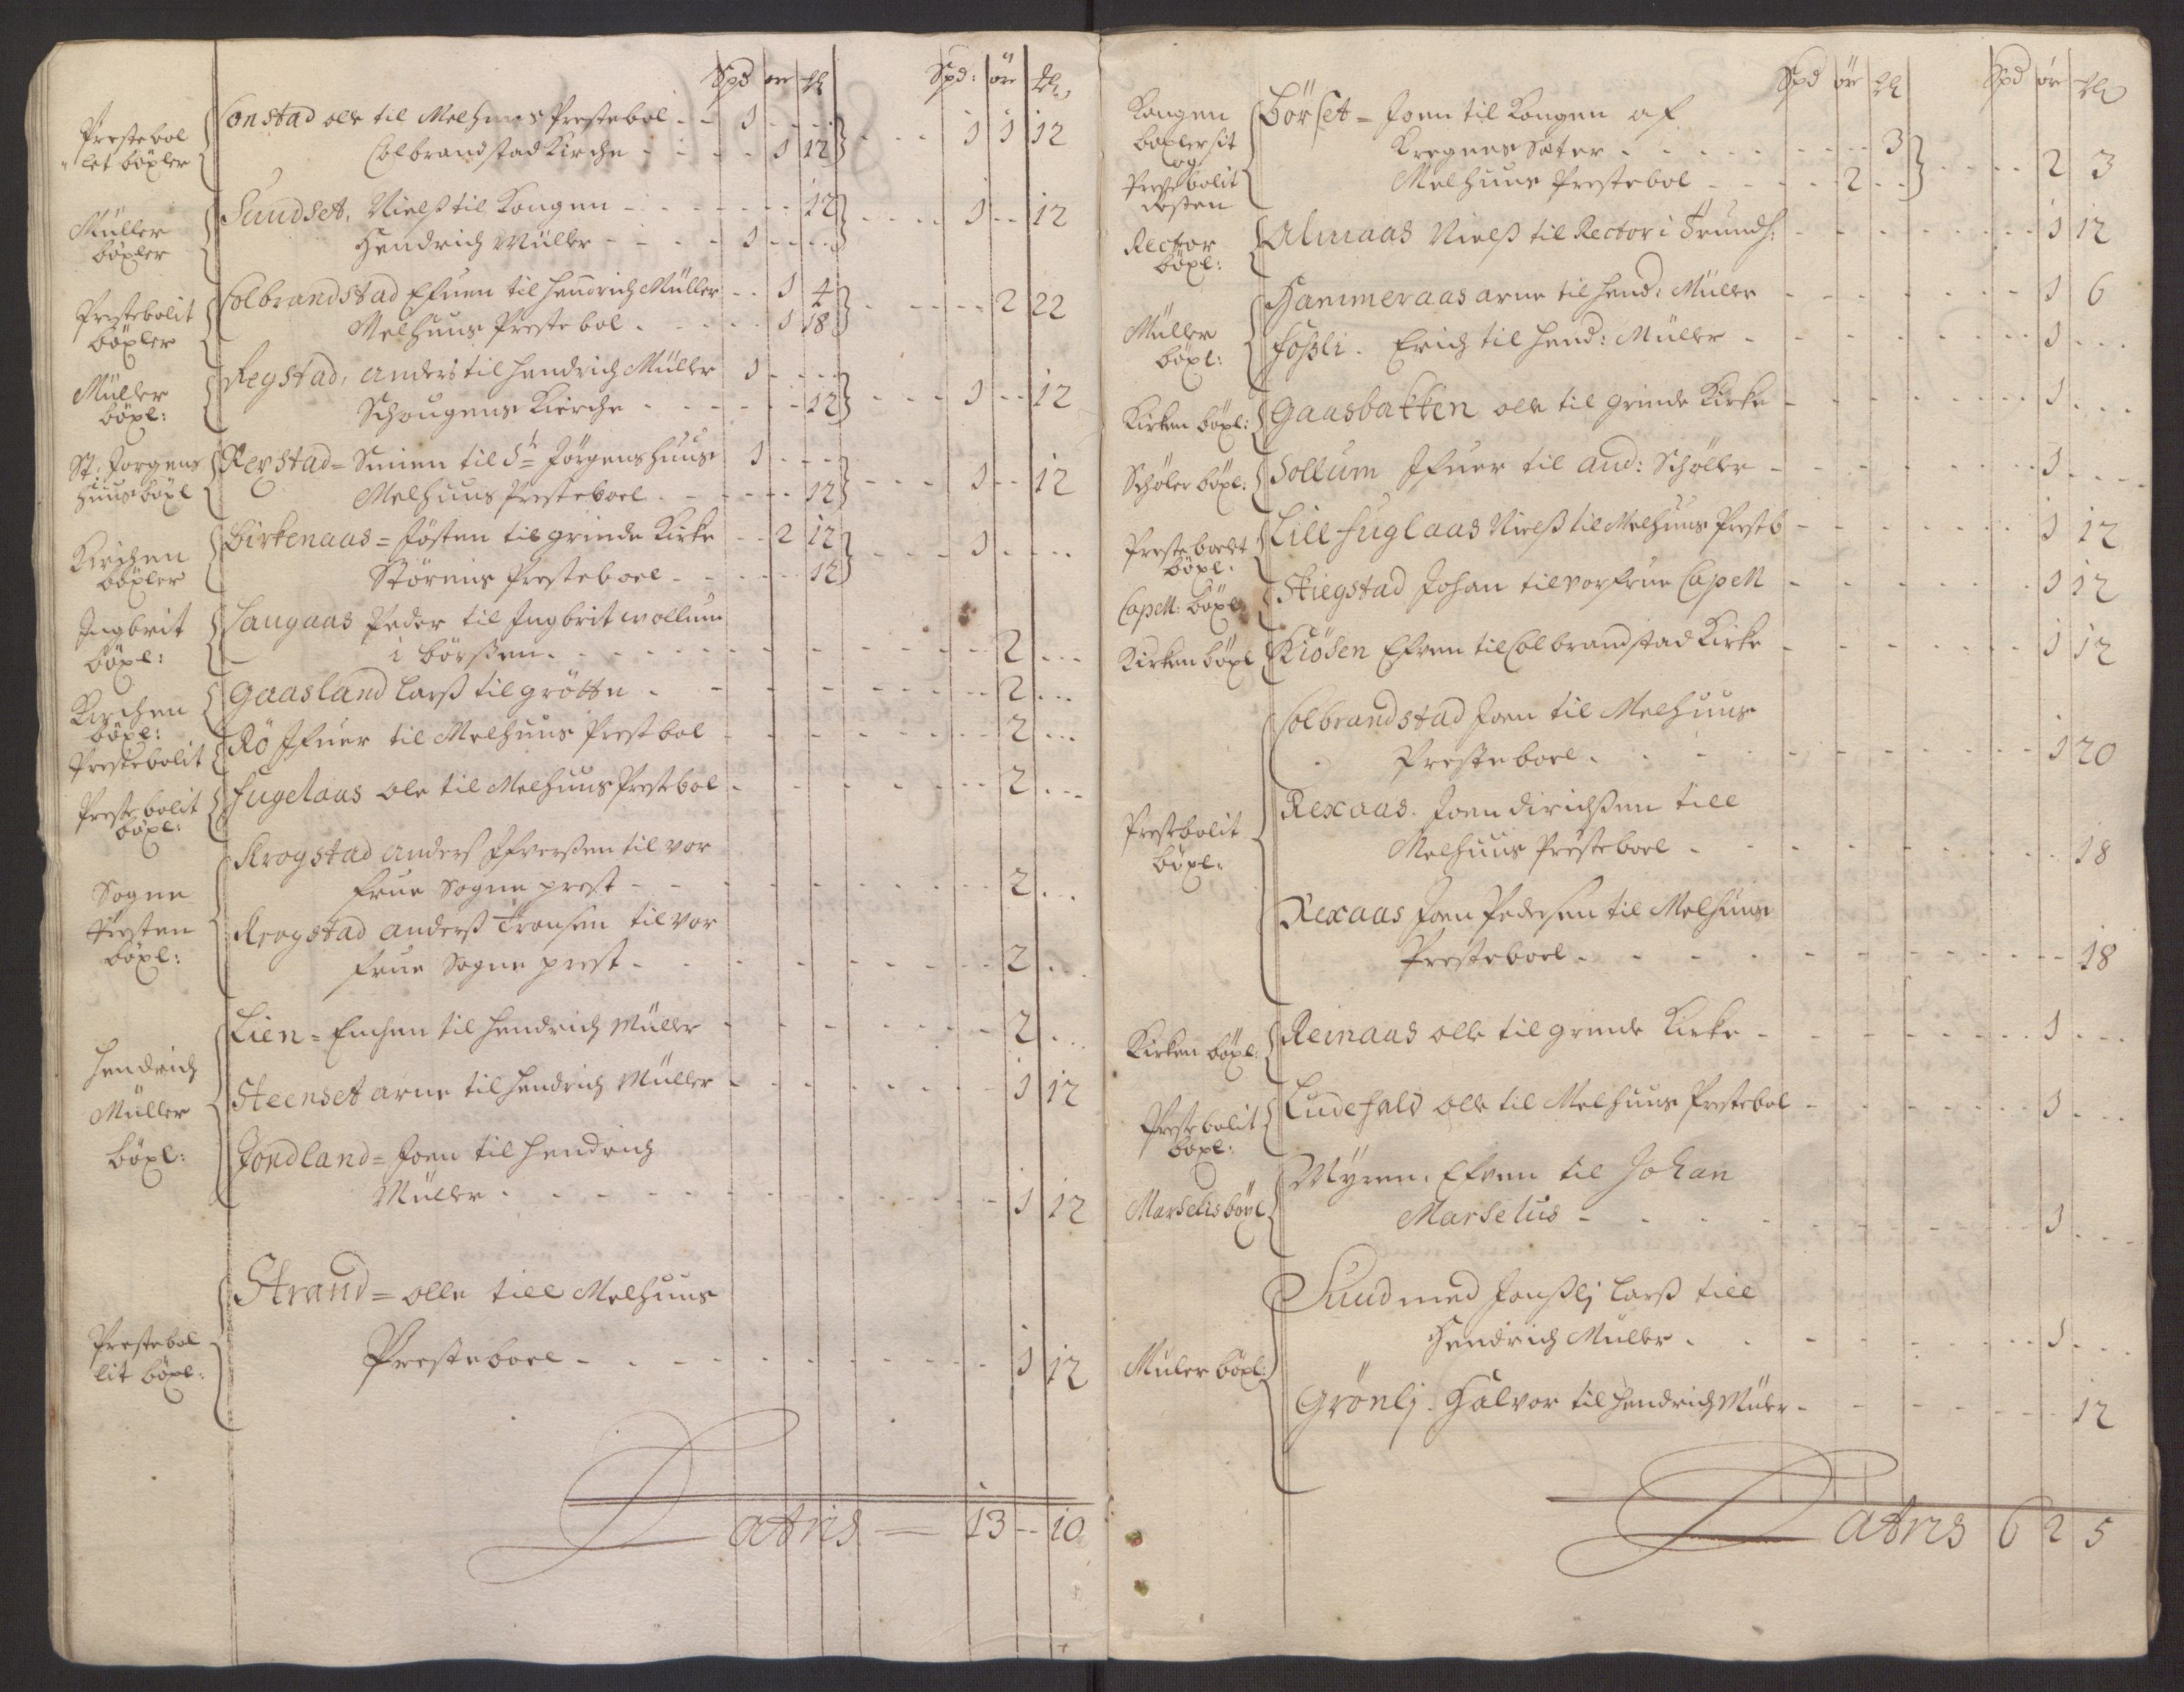 Spd ør ℔ Spd: ør ℔
Prestebol
let böxler
Sonstad olle til Melhuus Prestebol - - 1 - - -
Colbrandstad Kirche - - - - 1 12 - - - 1 1 12
Müller
böxler
Sundset, Nielß til Kongen - - - - - - 12
Hendrich Müller - - - - 1 - - - - - - 1 - - 12
Prestebolit
böxler
Colbrandstad Efuen til Hendrich Müller - - 1 4
Melhuus Prestebol - - - - - 1 18 - - - - 2 22
Müller
böxl:
Regstad, anders til Hendrich Müller 1 - - -
Schougens Kierche - - - - - - 12 - - - 1 - - 12
St: Jörgens
huus böxl
Regstad = Simen til St Jörgens huus 1 - - -
Melhuus Presteboel - - - - - - 12 - - - 1 - - 12
Kirchen
böxler
Birkenaas = Jösten til grinde Kirke - - 2 12
Störens Presteboel - - - - - - 12 - - - 1 - - -
Ingbrit
böxl:
Haugaas Peder til Ingbrit wollum
i börßen - - - - - - - 2 - - -
Kirchen
böxl:
Gaasland Larß til grötte - - - - - - - 2 - - -
Prestebolit
Rö Ifuer til Melhuus Prestbol - - - - - - 2 - - -
Prestebolit
böxl:
Fugelaas ole til Melhuus Prestbol - - - - - - 2 - - -
Sogne
Presten
böxl:
Krogstad Anders Ifverßen til vor
frue Sogne prest - - - - - - - 2 - - -
Krogstad Anderß Tronsen til vor
frue Sogne prest - - - - - - - 2 - - -
Hendrich
Müller
böxl:
Lien = til Hendrich Müller - - - - - - 2 - - -
Steenset arne til Hendrich Müller - - - - - - 1 12
Jondland = Joen til Hendrich
Müller - - - - - - - - - 1 12
Prestebol
lit böxl:
Strand = olle till Melhuus
Presteboel - - - - - - - - 1 12
Latris — 13 - - 10
Spd ør ℔ Spd ør ℔
Kongen
böxler sit
og
Prestebolit
resten
Börset = Joen til Kongen af
Kregnes Sæter - - - - - - - - 3
Melhuus Prestebol - - - - 2 - - - - - - 2 3
Rector
böxl:
Almaas Nielß til Rector i Trundh: - - - - - - - 1 12
Müller
böxl:
Hammeraas arne til Hend: Müller - - - - - - 1 6
Foßli. Erich til Hend: Müller - - - - - - 1 - - -
Kirken böxl:
Gaasbakken olle til grinde Kirke - - - - - - 1 - - -
Schöler böxl:
Sollum Ifuer til And: Schöller - - - - - - 1 - - -
Presteboelet
böxl:
Lill Fuglaas Nielß til Melhuus Prestb - - - - - - 1 12
Capell: böxl
Skiegstad Johan til vor frue Capell - - - - - - 1 12
Kirken böxl
Kiösen Efven til Colbrandstad Kirke - - - - - - 1 12
Prestebolit
böxl:
Colbrandstad Joen til Melhuus
Presteboel - - - - - - - - 1 20
Rexaas. Joen Dirichßen till
Melhuus Presteboel - - - - - - - 18
Rexaas Joen Pedersen til Melhuus
Presteboel - - - - - - - - - 18
Kirken böxl:
Reinaas olle til grinde Kirke - - - - - - 1 - - -
Prestebolit
böxl:
Ludefald olle til Melhuus Prestebol - - - - - - 1 - - -
Marselis böxl
Myren. Efven til Johan
Marselius - - - - - - - - 1 - - -
Muler böxl:
Sund med Jonßlj Larß till
Hendrich Müller - - - - - - - 1 - - -
Grönlj. Halvor til Hendrich Müler - - - - - - 12
Latris 6 2 5